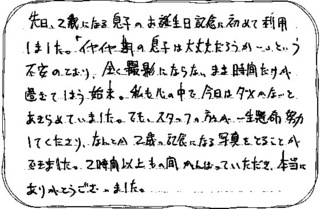 先日、2歳になる息子のお誕生日記念に初めて利用
しました。「イヤイヤ期の息子は大丈夫だろうか…」という
不安のとおり、全く撮影にならない。まま時間だけが
過ぎてしまう始末。私も心の中で、今日はダメかな…と
あきらめていました。でも、スタッフの方が一生懸命努力
してくださり、なんとか2歳の記念になる写真をとることが
できました。2時間以上もの間がんばっていただき、本当に
ありがとうございました。